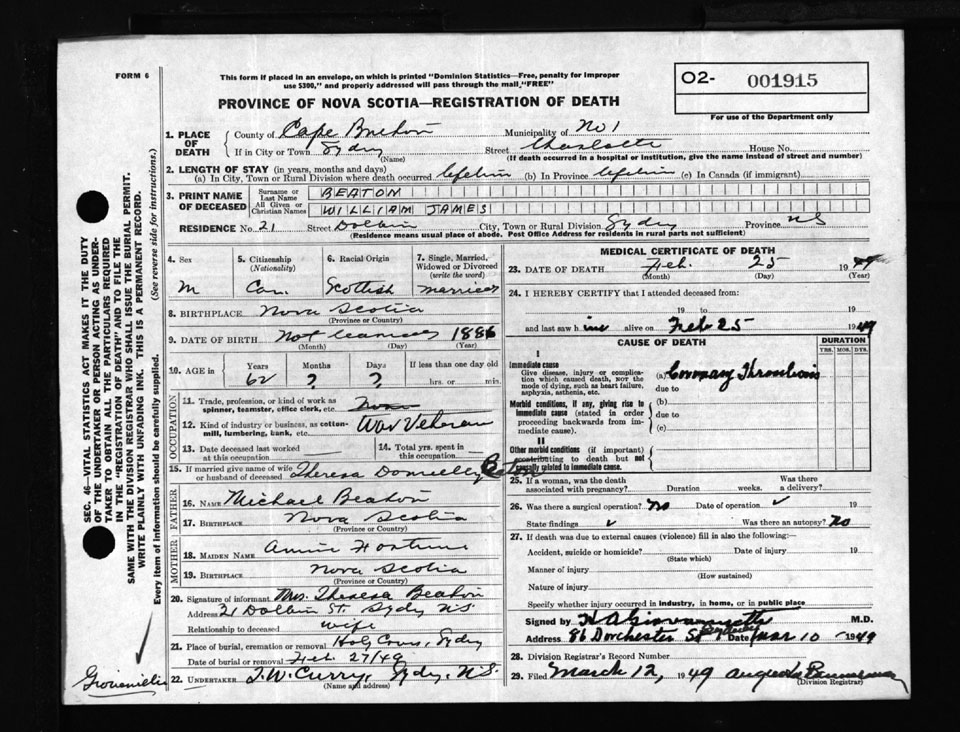 FORM 6
This form if placed in an envelope, on which is printed "Dominion Statistics—Free, penalty for improper
use $300," and properly addressed will pass through the mail "FREE"
O2- 001915
For use of the Department only
PROVINCE OF NOVA SCOTIA—REGISTRATION OF DEATH
1. PLACE OF DEATH
County of Cape Breton Municipality of No 1
If in City or Town Sydney Street Charlotte House No.
(Name) (If death occurred in a hospital or institution, give the name instead of street and number)
2. LENGTH OF STAY (in years, months and days)
(a) In City, Town or Rural Division where death occurred lifetime (b) In Province lifetime (c) In Canada (if immigrant)
3. PRINT NAME OF DECEASED
Surname or Last Name BEATON
All Given or Christian Names WILLIAM JAMES
RESIDENCE No. 21 Street Dolbin City, Town or Rural Division Sydney Province NS
(Residence means usual place of abode. Post Office Address for residents in rural parts not sufficient)
4. Sex 5. Citizenship (Nationality) 6. Racial Origin 7. Single, Married, Widowed or Divorced (write the word)
M Can. Scottish married
8. BIRTHPLACE Nova Scotia
(Province or Country)
9. DATE OF BIRTH Not 1886
(Month) (Day) (Year)
10. AGE in Years Months Days If less than one day old
62 ? ? hrs. or min.
OCCUPATION
11. Trade, profession, or kind of work as
spinner, teamster, office clerk, etc. None
12. Kind of industry or business, as cotton-
mill, lumbering, bank, etc. War Veteran
13. Date deceased last worked
at this occupation
14. Total yrs. spent in
this occupation
15. If married give name of wife
or husband of deceased Theresa Donnelly Beaton
FATHER
16. NAME Michael Beaton
17. BIRTHPLACE Nova Scotia
(Province or Country)
MOTHER
18. MAIDEN NAME Annie
19. BIRTHPLACE Nova Scotia
(Province or Country)
20. Signature of informant Mrs. Theresa Beaton
Address 21 Dolbin St. Sydney N.S.
Relationship to deceased wife
21. Place of burial, cremation or removal Holy Cross, Sydney
Date of burial or removal Feb. 27/49
22. UNDERTAKER T.W. Curry, Sydney, N.S.
(Name and address)
MEDICAL CERTIFICATE OF DEATH
23. DATE OF DEATH Feb. 25 1949
(Month) (Day) (Year)
24. I HEREBY CERTIFY that I attended deceased from:
19 to 19
and last saw him alive on Feb 25 1949
CAUSE OF DEATH DURATION
YRS. MOS. DYS.
I
Immediate cause
Give disease, injury or complica-
tion which caused death, not the
mode of dying, such as heart failure,
asphyxia, asthenia, etc.
(a) Coronary Thrombosis
due to
Morbid conditions, if any, giving rise to
immediate cause (stated in order
proceeding backwards from im-
mediate cause).
(b)
due to
(c)
II
Other morbid conditions (if important)
contributing to death but not
causally related to immediate cause.
25. If a woman, was the death
associated with pregnancy? Duration weeks. Was there
a delivery?
26. Was there a surgical operation? No Date of operation
State findings Was there an autopsy? No
27. If death was due to external causes (violence) fill in also the following:—
Accident, suicide or homicide? Date of injury 19
(State which)
Manner of injury
(How sustained)
Nature of injury
Specify whether injury occurred in industry, in home, or in public place
Signed by H A M.D.
Address 86 Dorchester St Sydney Date Mar 10 1949
28. Division Registrar's Record Number
29. Filed March 12, 1949
(Division Registrar)
SEC. 46—VITAL STATISTICS ACT MAKES IT THE DUTY
OF THE UNDERTAKER OR PERSON ACTING AS UNDER-
TAKER TO OBTAIN ALL THE PARTICULARS REQUIRED
IN THE "REGISTRATION OF DEATH" AND TO FILE THE
SAME WITH THE DIVISION REGISTRAR WHO SHALL ISSUE THE BURIAL PERMIT.
WRITE PLAINLY WITH UNFADING INK. THIS IS A PERMANENT RECORD.
Every item of information should be carefully supplied. (See reverse side for instructions.)